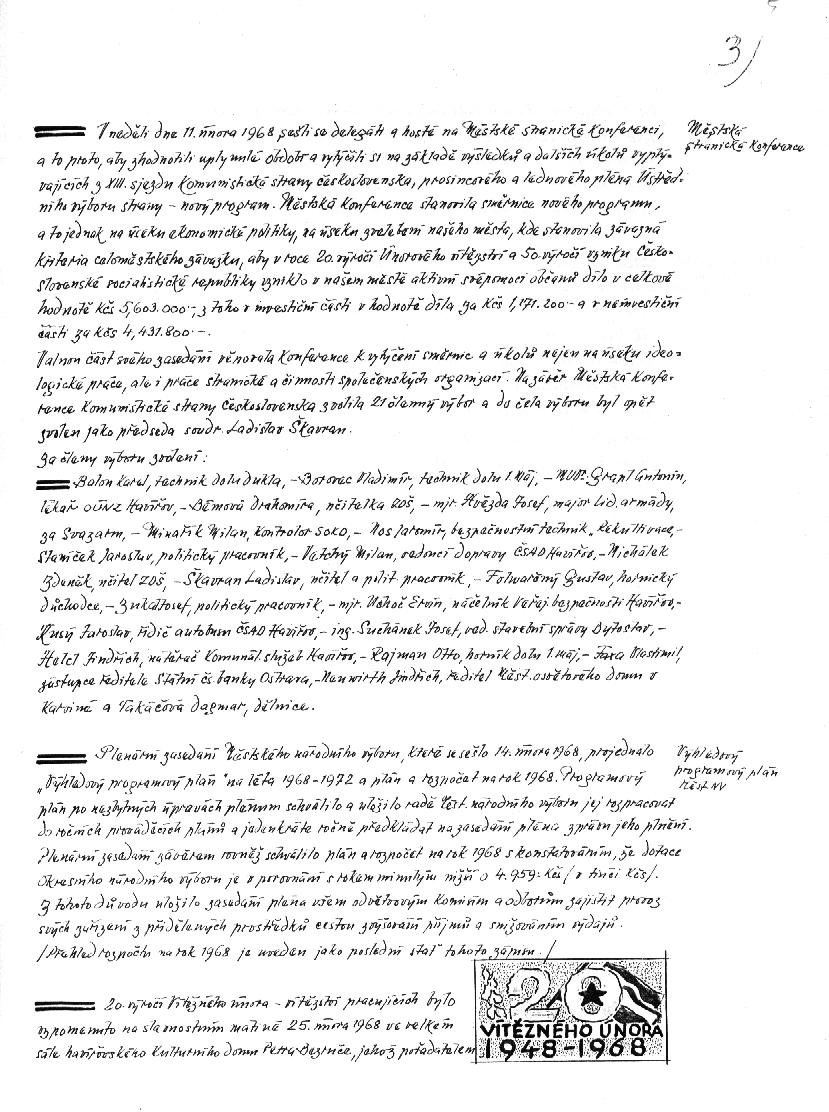 3)
V neděli dne 11. února 1968 sešli se delegáti a hosté na Městské stranické konferenci,
Městská
stranická konference
a to proto, aby zhodnotili uplynulé období a vytýčili si na základě výsledků a dalších úkolů vyplý-
vajících z XIII. sjezdu Komunistické strany Československa, prosincového a lednového pléna Ústřed-
ního výboru strany – nový program. Městská konference stanovila směrnice nového programu,
a to jednak na úseku ekonomické politiky, na úseku zvelebení našeho města, kde stanovila závazná
kriteria celoměstského závazku, aby v roce 20. výročí Únorového vítězství a 50. výročí vzniku Česko-
slovenské socialistické republiky vzniklo v našem městě aktivní svépomocí občanů dílo v celkové
hodnotě Kčs 5,603.000.-, z toho v investiční části v hodnotě díla za Kčs 1,171.200.- a v neinvestiční
části za Kčs 4,431.800.-.
Valnou část svého zasedání věnovala konference k vytýčení směrnic a úkolů nejen na úseku ideo-
logické práce, ale i práce stranické a činnosti společenských organizací. Na závěr Městská konfe-
rence Komunistické strany Československa zvolila 21 členný výbor a do čela výboru byl opět
zvolen jako předseda soudr. Ladislav Škavran.
Za členy výboru zvoleni:
Balon Karel, technik dolu Dukla, – Borovec Vladimír, technik dolu 1. Máj, – MUDr. Grapl Antonín,
lékař OÚNZ Havířov, – Bémová Drahomíra, učitelka ZDŠ, – mjr. Hvězda Josef, major Lid. armády,
za Svazarm, – Minařík Milan, kontrolor SOKO, – Nos Jaromír, bezpečnostní technik „Rekultivace, –
Staníček Jaroslav, politický pracovník, – Vatchý Milan, vedoucí dopravy ČSAD Havířov, – Michálek
Zdeněk, učitel ZDŠ, – Škavran Ladislav, učitel a polit. pracovník, – Folwarczný Gustav, hornický
důchodce, – Zukal Josef, politický pracovník, – mjr. Uhoč Ervín, náčelník Veřej. bezpečnosti Havířov, –
Kusý Jaroslav, řidič autobusu ČSAD Havířov, – ing. Suchánek Josef, ved. stavební správy Bytostav, –
Helcl Jindřich, natěrač Komunál. služeb Havířov, – Rajman Otto, horník dolu 1. Máj, – Fara Vlastimil,
zástupce ředitele Státní čs. banky Ostrava, – Neuwirth Jindřich, ředitel Měst. osvětového domu v
Karviné a Takáčová Dagmar, dělnice.
Plenární zasedání Městského národního výboru, které se sešlo 14. února 1968, projednalo
Výhledový
programový plán
Měst NV
„Výhledový programový plán" na léta 1968-1972 a plán a rozpočet na rok 1968. Programový
plán po nezbytných úpravách plénum schválilo a uložilo radě Měst. národního výboru jej rozpracovat
do ročních prováděcích plánů a jedenkráte ročně předkládat na zasedání pléna zprávu jeho plnění.
Plenární zasedání závěrem rovněž schválilo plán a rozpočet na rok 1968 s konstatováním, že dotace
Okresního národního výboru je v porovnání s rokem minulým nižší o 4.959.- Kčs / v tisíci Kčs/.
Z tohoto důvodu uložilo zasedání pléna všem odvětvovým komisím a odborům zajistit provoz
svých zařízení z přidělených prostředků cestou zvyšování příjmů a snižováním výdajů.
/Přehled rozpočtu na rok 1968 je uveden jako poslední stať tohoto zápisu./
20. výročí Vítězného února – vítězství pracujících bylo
vzpomenuto na slavnostním matiné 25. února 1968 ve velkém
sále havířovského Kulturního domu Petra Bezruče, jehož pořadatelem
20
VÍTĚZNÉHO ÚNORA
1948-1968